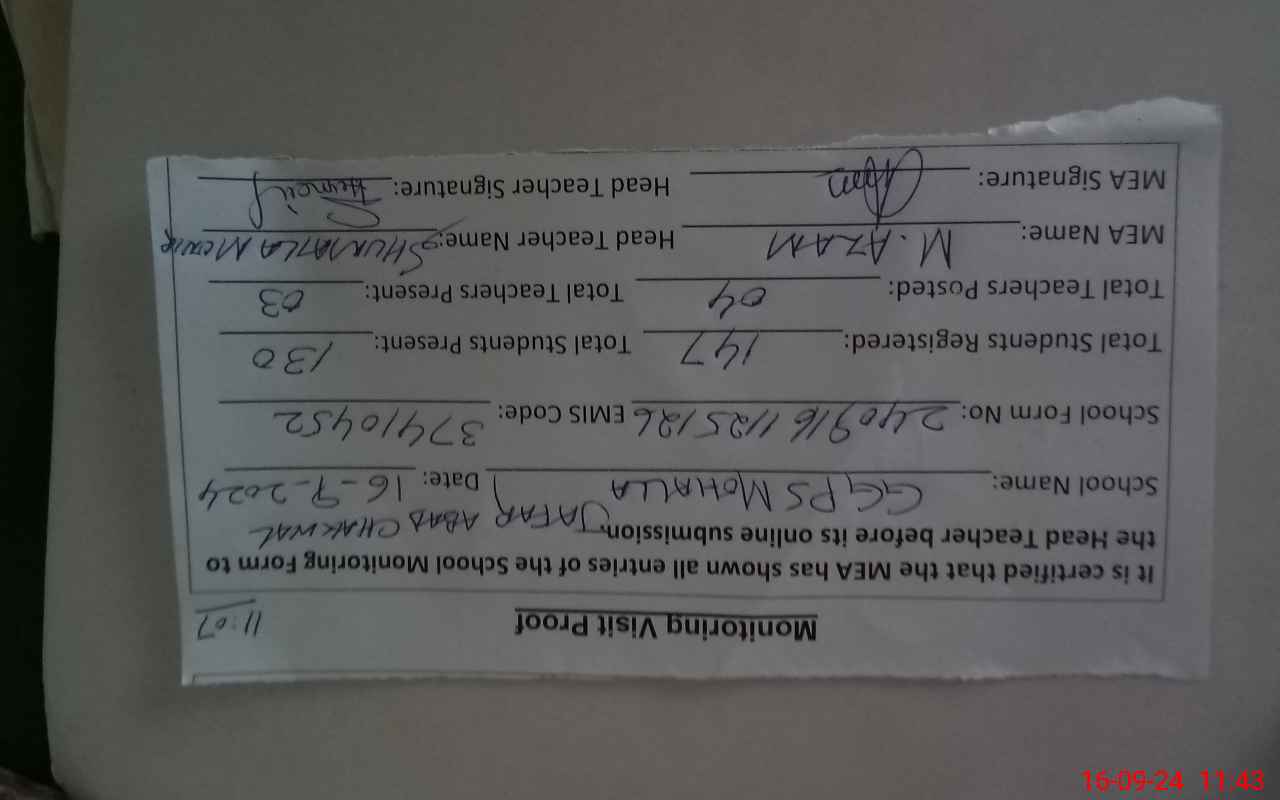 Monitoring Visit Proof 11:07
It is certified that the MEA has shown all entries of the School Monitoring Form to
the Head Teacher before its online submission.
School Name: GGPS MOHALLA JAFAR ABAD CHAKWAL Date: 16-9-2024
School Form No: 2409161125126 EMIS Code: 37410452
Total Students Registered: 147 Total Students Present: 130
Total Teachers Posted: 04 Total Teachers Present: 03
MEA Name: M. AZAM Head Teacher Name: SHUMAILA
MEA Signature: Head Teacher Signature:
16-09-24 11:43